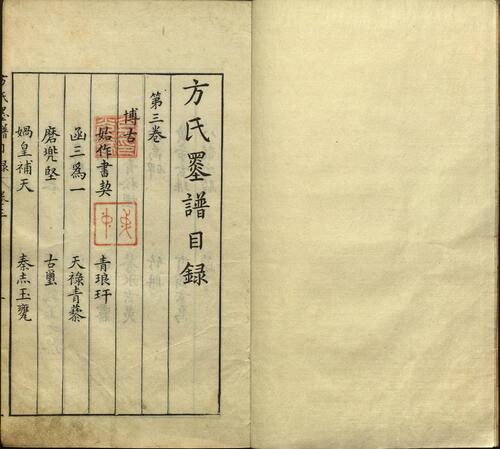 方氏墨譜目録
第三卷
博古
始作書契 青琅玕
函三爲一 天祿青藜
磨兜堅 古璽
媧皇補天 秦𤇆玉甕
方氏墨譜目録 卷三